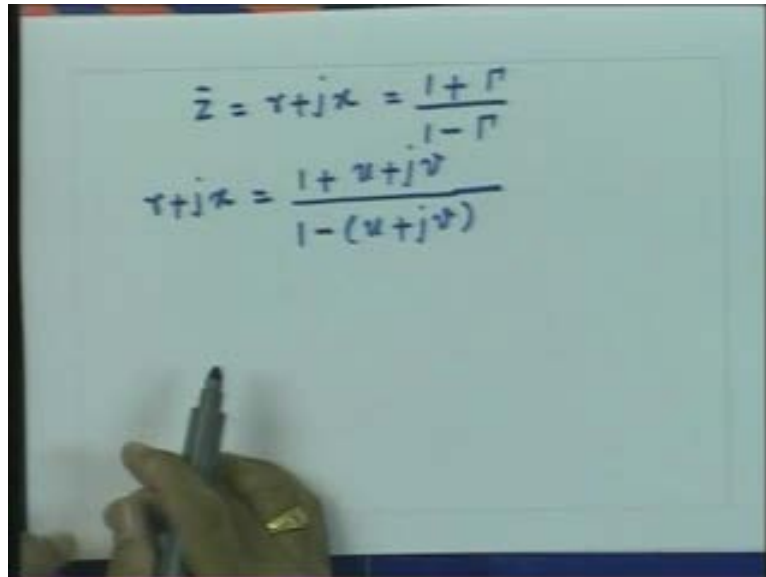 z̄ = r+jx = (1 + Γ)/(1 − Γ)
r+jx = (1 + u+jv)/(1−(u+jv))